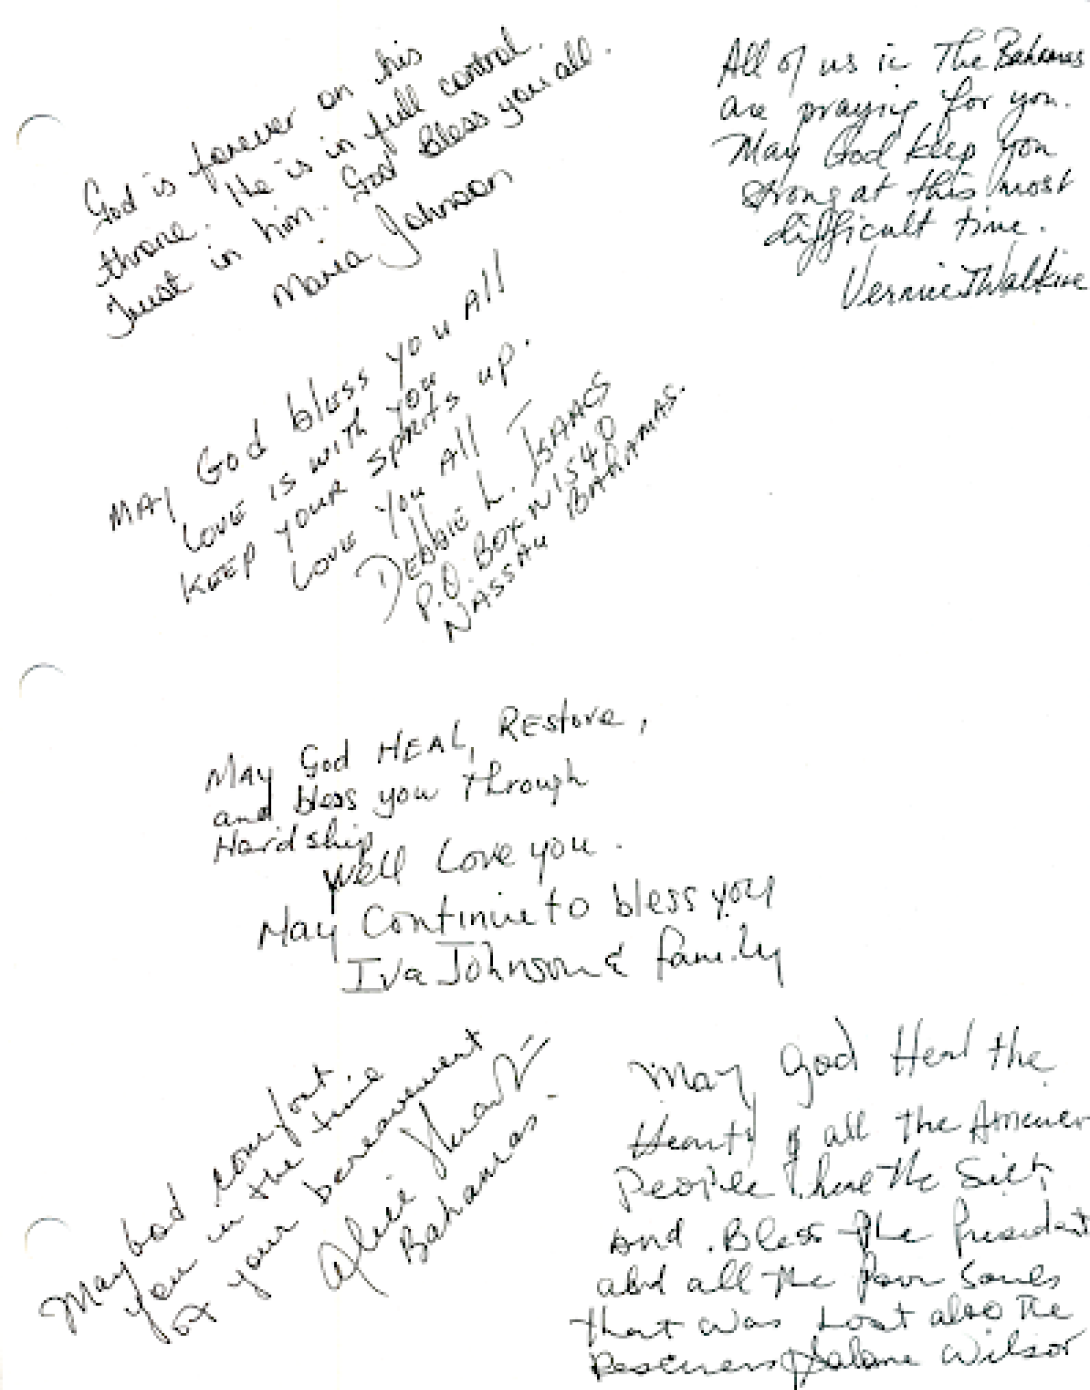 God is forever on his
throne. He is in full control.
Trust in him. God Bless you all.
Maria Johnson
All of us in The Bahamas
are praying for you.
May God keep you
strong at this most
difficult time.
Vernie J Walkine
MAY God bless you All
LOVE IS WITH YOU
KEEP YOUR SPRITS UP.
LOVE YOU All –
DEbbIE L. ISAACS
P.O. BOX N1540
NASSAU BAHAMAS.
May God HEAL, REstore,
and bless you through
Hardship
Well Love you.
May Continue to bless you
Iva Johnson & family
May God comfort
you in the time
of your bereavement
Bahamas.
May God Heal the
Hearts of all the
People the Sick
And. Bless the President
and all the Poor Souls
that was Lost also The
Rescuers Wilson